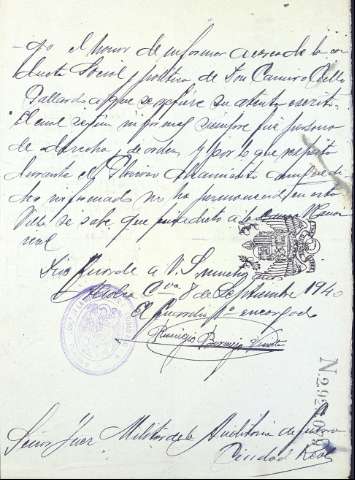 -go el honor de informar acerca de la con
ducta Social y politica de Don Camilo
Gallardo a que se refiere su atento escrito
El cual según informes siempre fue persona
de derecha y de orden y por lo que respecta
durante el Glorioso alzamiento aunque di
cho informado no ha permanecido en esta
Villa se sabe que era adicto a la Causa Nacio
nal
Dios Guarde a V.S. muchos
8 de Septiembre 1940
El Guardia 2º encargado
Remigio Bermejo
N.2
Señor Juez Militar de la Auditoria de Guerra
Ciudad Real